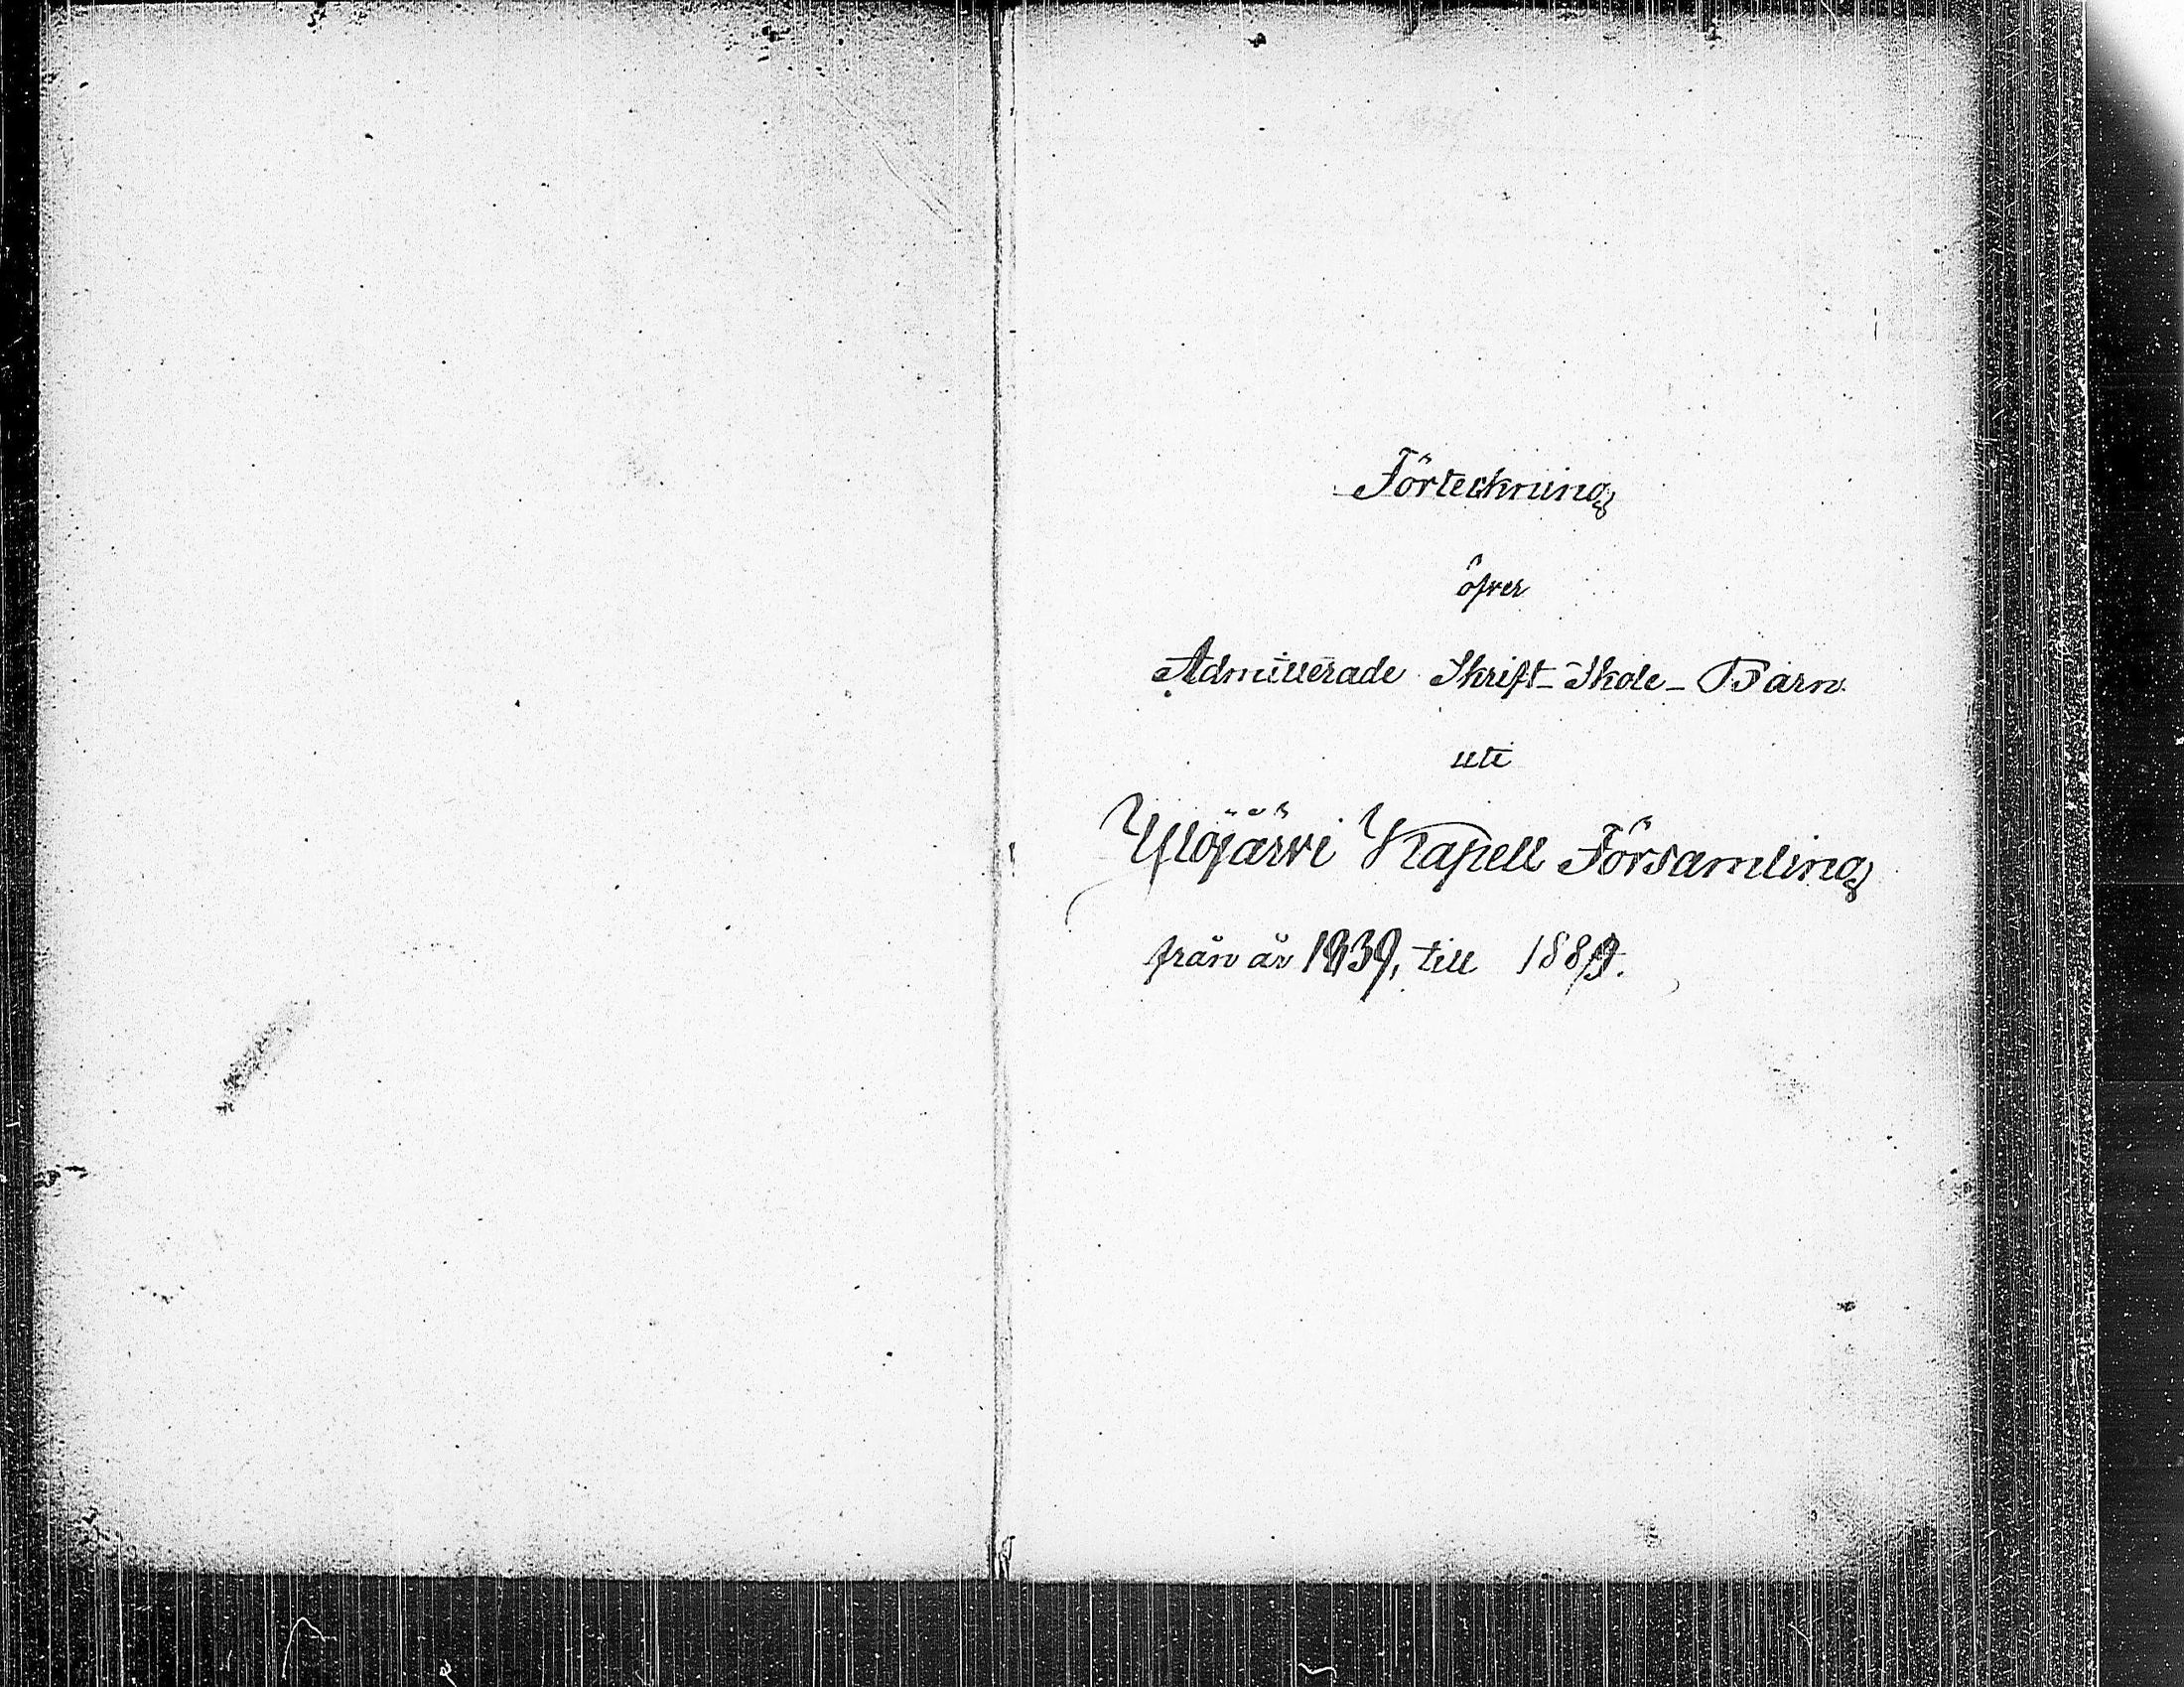 Förteckning
öfver
Admitterade Skrift-Skole-Barn
uti
Ylöjärvi Kapell Församling
från år 1839, till 1889.